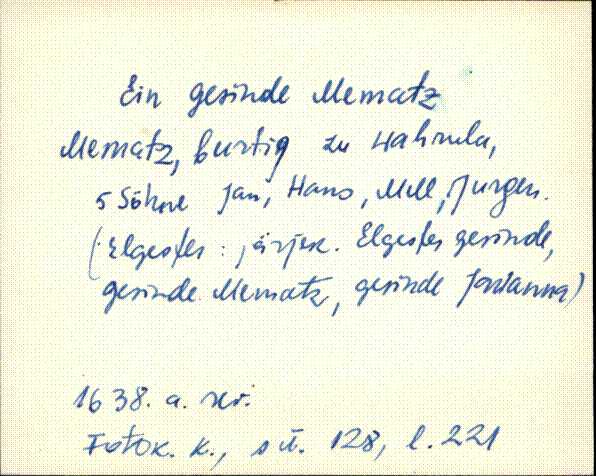 Ein gesinde Mematz
Mematz, burtig zu Wahmla,
5 Söhne Jan, Hans, Mell, Jurgen.
(Elgesfer: järjek. Elgesfer gesinde,
gesinde Mematz, gesinde Jontanna)
1638. a. rev.
Fotok. k., s ü. 128, l. 221